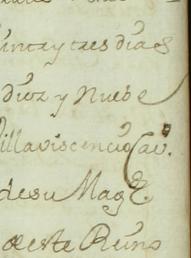 uinta y tres dias
diez y Nuebe
Villaviscencio Cav.
de su Magd.
de este Reyno